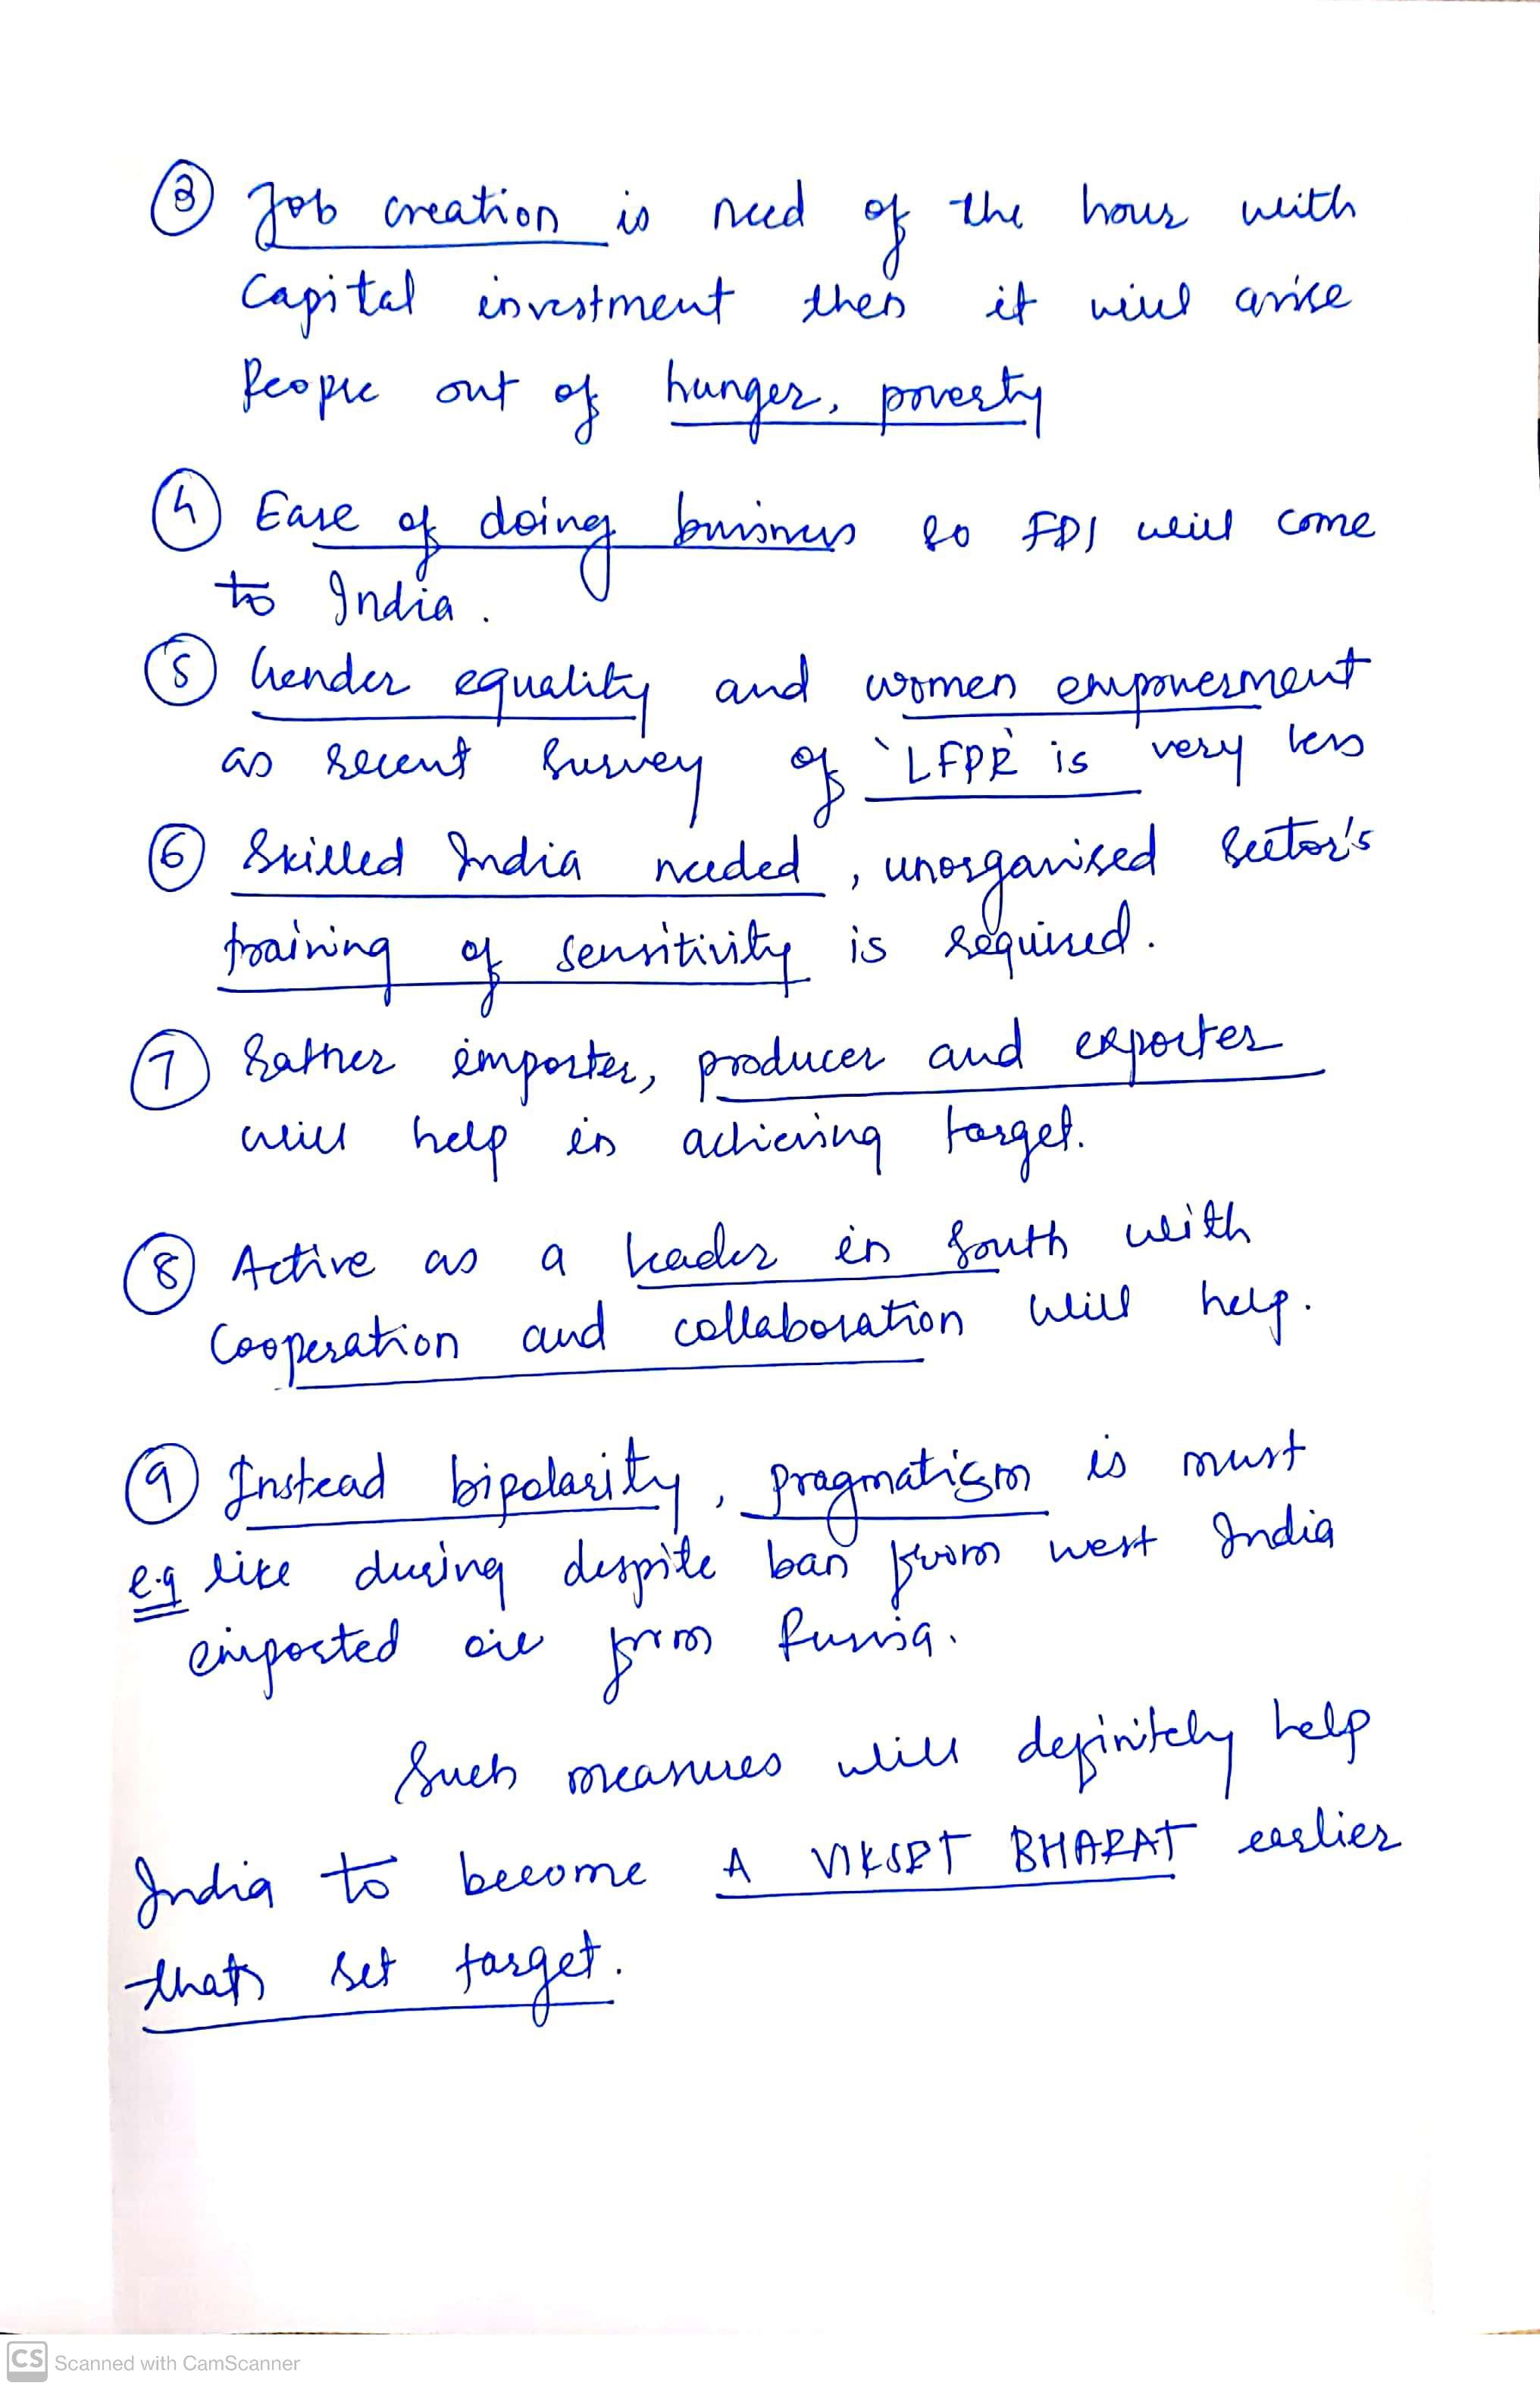 ③ Job creation is need of the hour with
Capital investment then it will arise
People out of hunger, poverty
④ Ease of doing business so FDI will come
to India.
⑤ Gender equality and women empowerment
as recent survey of 'LFPR' is very less
⑥ Skilled India needed, unorganised sector's
training of sensitivity is required.
⑦ Rather importer, producer and exporter
will help in achieving target.
⑧ Active as a leader in South with
Cooperation and collaboration will help.
⑨ Instead bipolarity, pragmatism is must
e.g like during despite ban from west India
imported oil from Russia.
Such measures will definitely help
India to become A VIKSIT BHARAT earlier
than set target.
CS Scanned with CamScanner